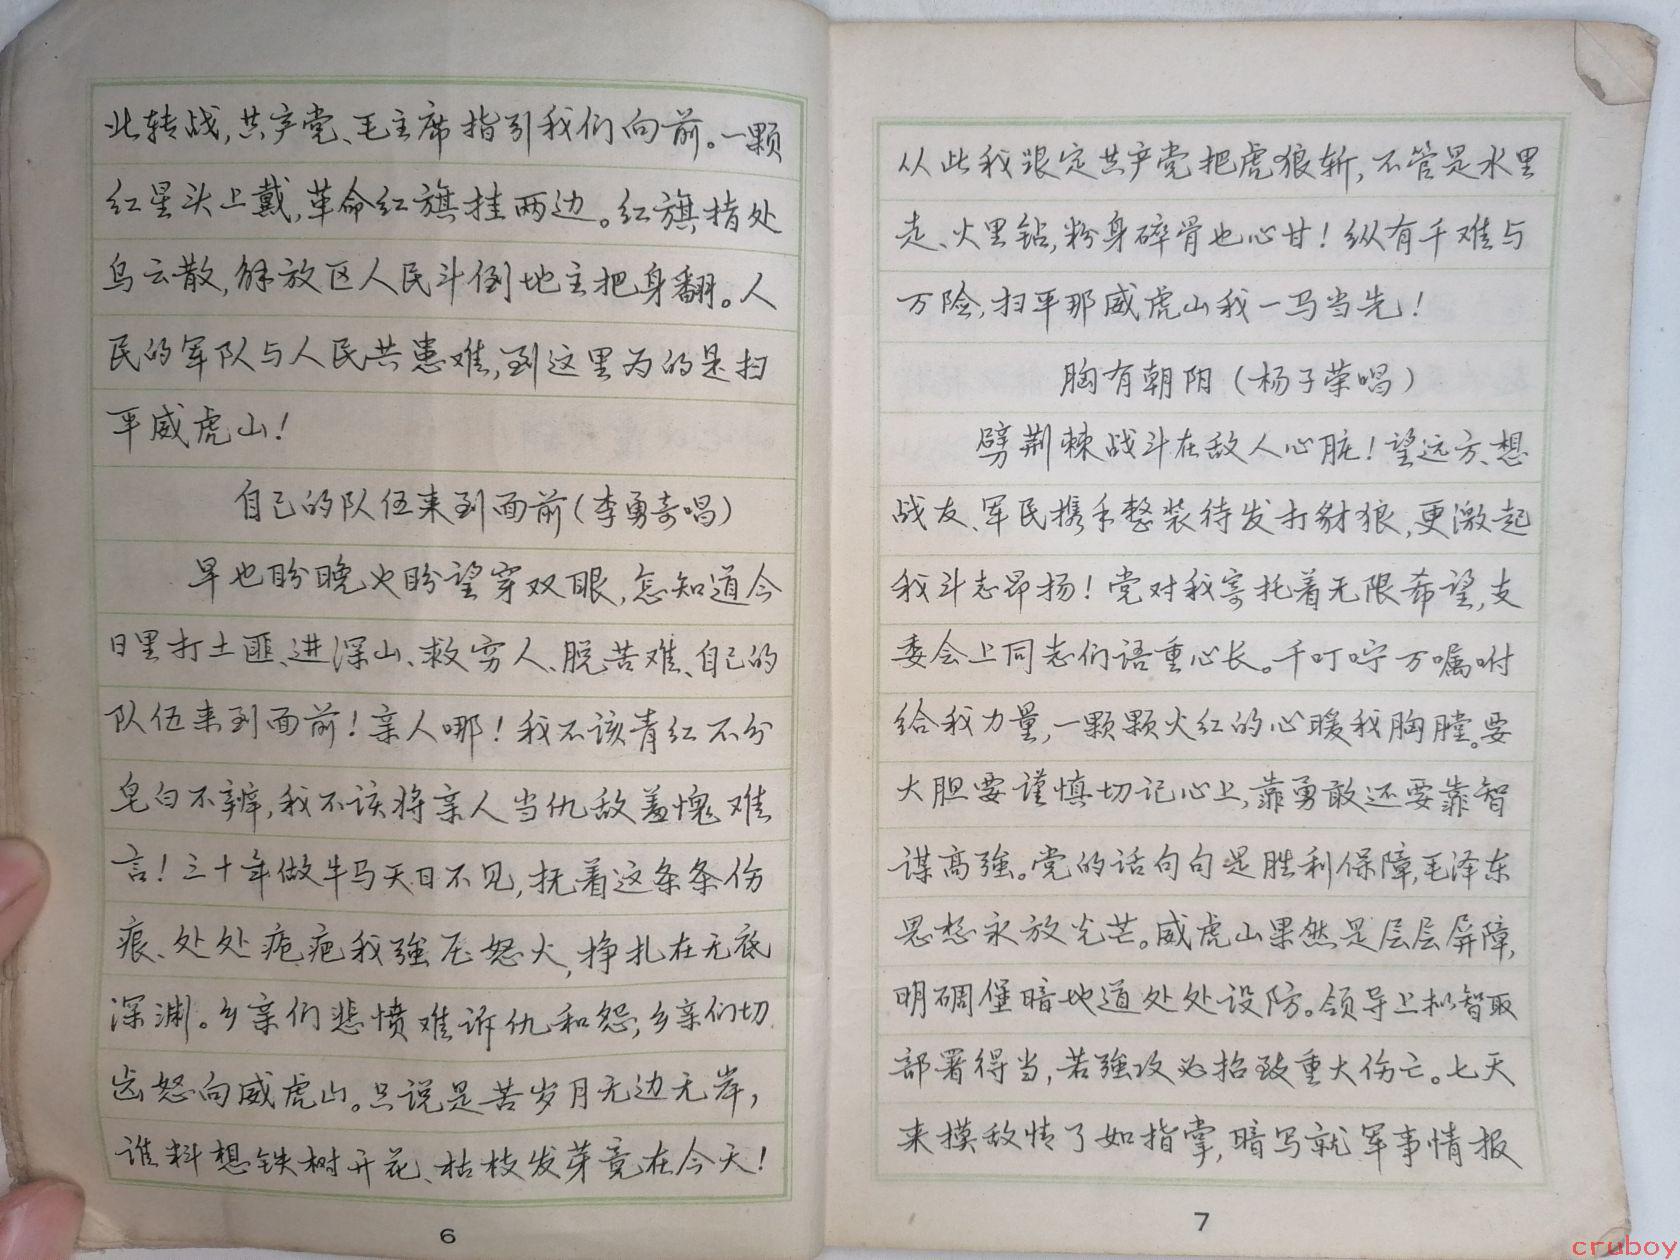 北转战,共产党、毛主席指引我们向前。一颗
红星头上戴,革命红旗挂两边。红旗指处
乌云散,解放区人民斗倒地主把身翻。人
民的军队与人民共患难,到这里为的是扫
平威虎山!
自己的队伍来到面前(李勇奇唱)
早也盼晚也盼望穿双眼,怎知道今
日里打土匪、进深山、救穷人、脱苦难、自己的
队伍来到面前!亲人哪!我不该青红不分
皂白不辨,我不该将亲人当仇敌羞愧难
言!三十年做牛马天日不见,抚着这条条伤
痕、处处疤疤我強压怒火,挣扎在无底
深渊。乡亲们悲愤难诉仇和怨,乡亲们切
齿怒向威虎山。只说是苦岁月无边无岸,
谁料想铁树开花、枯枝发芽竟在今天!
6
从此我跟定共产党把虎狼斩,不管是水里
走、火里钻,粉身碎骨也心甘!纵有千难与
万险,扫平那威虎山我一马当先!
胸有朝阳(杨子荣唱)
劈荆棘战斗在敌人心脏!望远方、想
战友、军民携手整装待发打豺狼,更激起
我斗志昂扬!党对我寄托着无限希望,支
委会上同志们语重心长。千叮咛万嘱咐
给我力量,一颗颗火红的心暖我胸膛。要
大胆要谨慎切记心上,靠勇敢还要靠智
谋高強。党的话句句是胜利保障,毛泽东
思想永放光芒。威虎山果然是层层屏障,
明碉堡暗地道处处设防。领导上拟智取
部署得当,若強攻必招致重大伤亡。七天
来摸敌情了如指掌,暗写就军事情报
7
cruboy